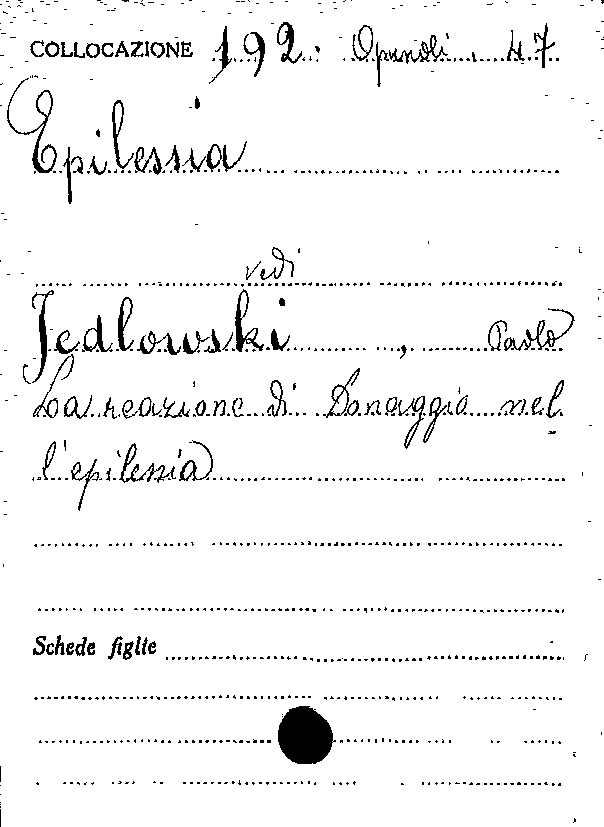 COLLOCAZIONE 192. Opuscoli. 47
Epilessia
vedi
Jedlowski, Paolo
La reazione di Donaggio nel
l'epilessia
Schede figlie